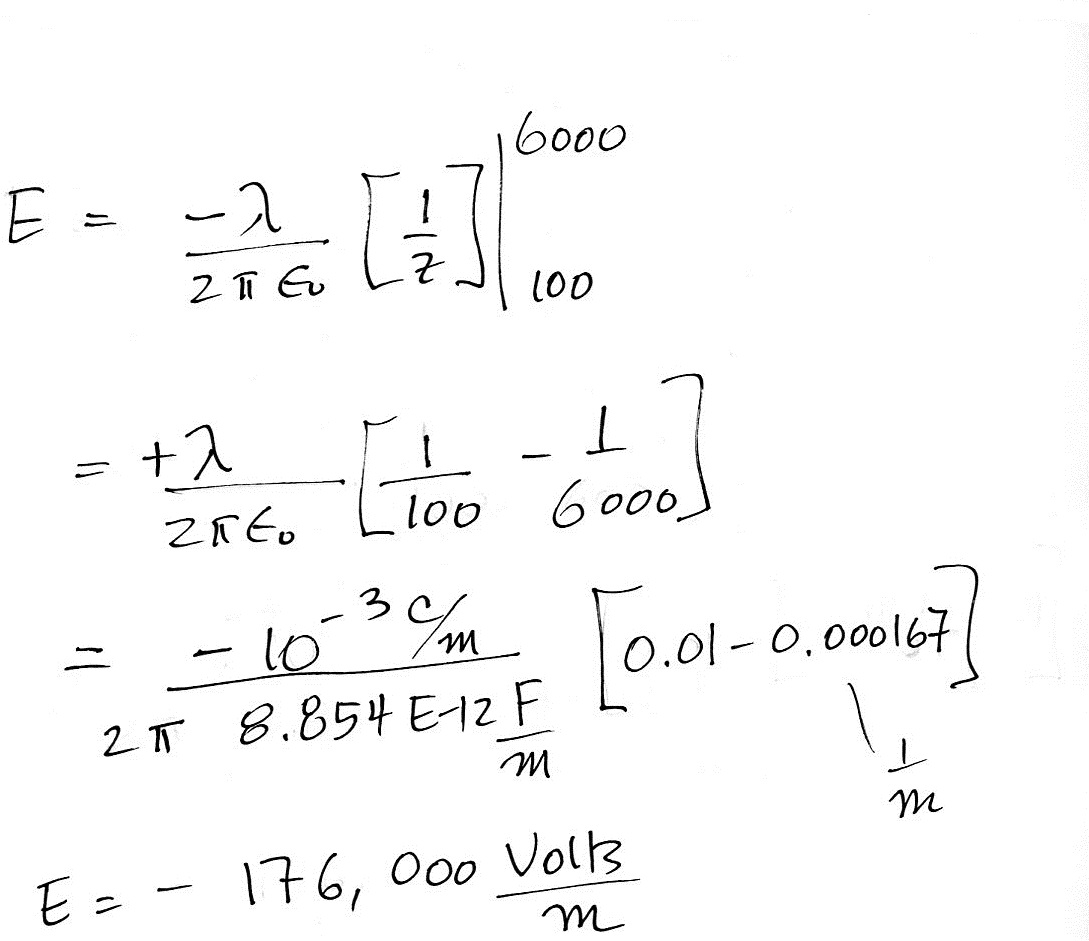 E = -λ / 2π ε₀ [1/z] |₁₀₀⁶⁰⁰⁰
= +λ / 2π ε₀ [1/100 - 1/6000]
= -10⁻³ C/m / 2π 8.854 E-12 F/m [0.01 - 0.000167]
1/m
E = - 176, 000 Volts/m